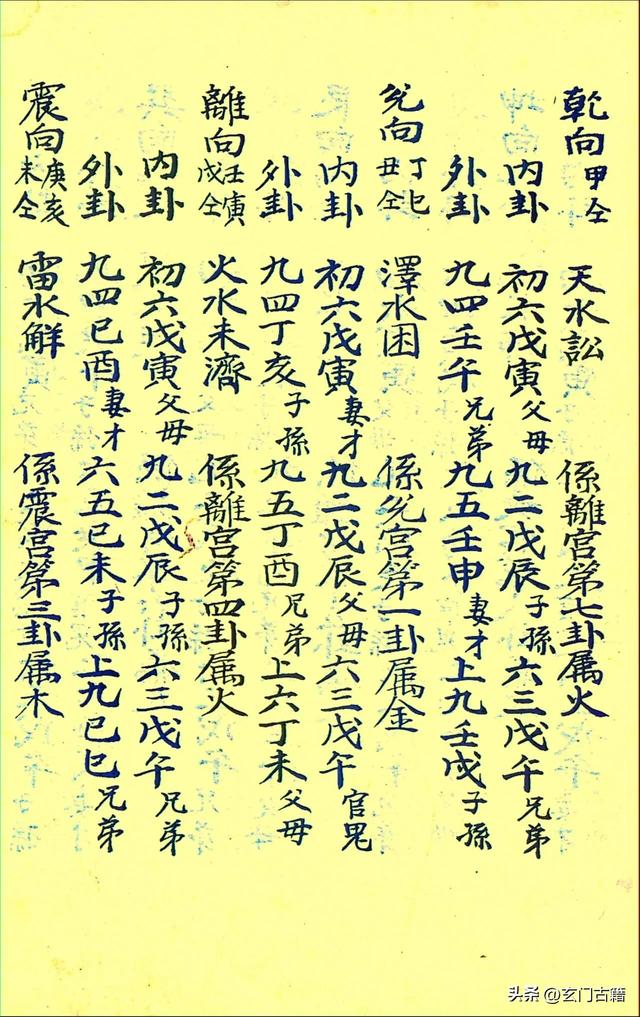 乾向甲仝 天水訟 係離宮第七卦属火
内卦 初六戊寅父母 九二戊辰子孫 六三戊午兄弟
外卦 九四壬午兄弟 九五壬申妻才 上九壬戌子孫
兊向丁巳丑仝 澤水困 係兊宮第一卦属金
内卦 初六戊寅妻才 九二戊辰父母 六三戊午官鬼
外卦 九四丁亥子孫 九五丁酉兄弟 上六丁未父母
離向壬寅戌仝 火水未濟 係離宮第四卦属火
内卦 初六戊寅父母 九二戊辰子孫 六三戊午兄弟
外卦 九四已酉妻才 六五已未子孫 上九已巳兄弟
震向庚亥未仝 雷水解 係震宮第三卦属木
头条 @玄门古籍